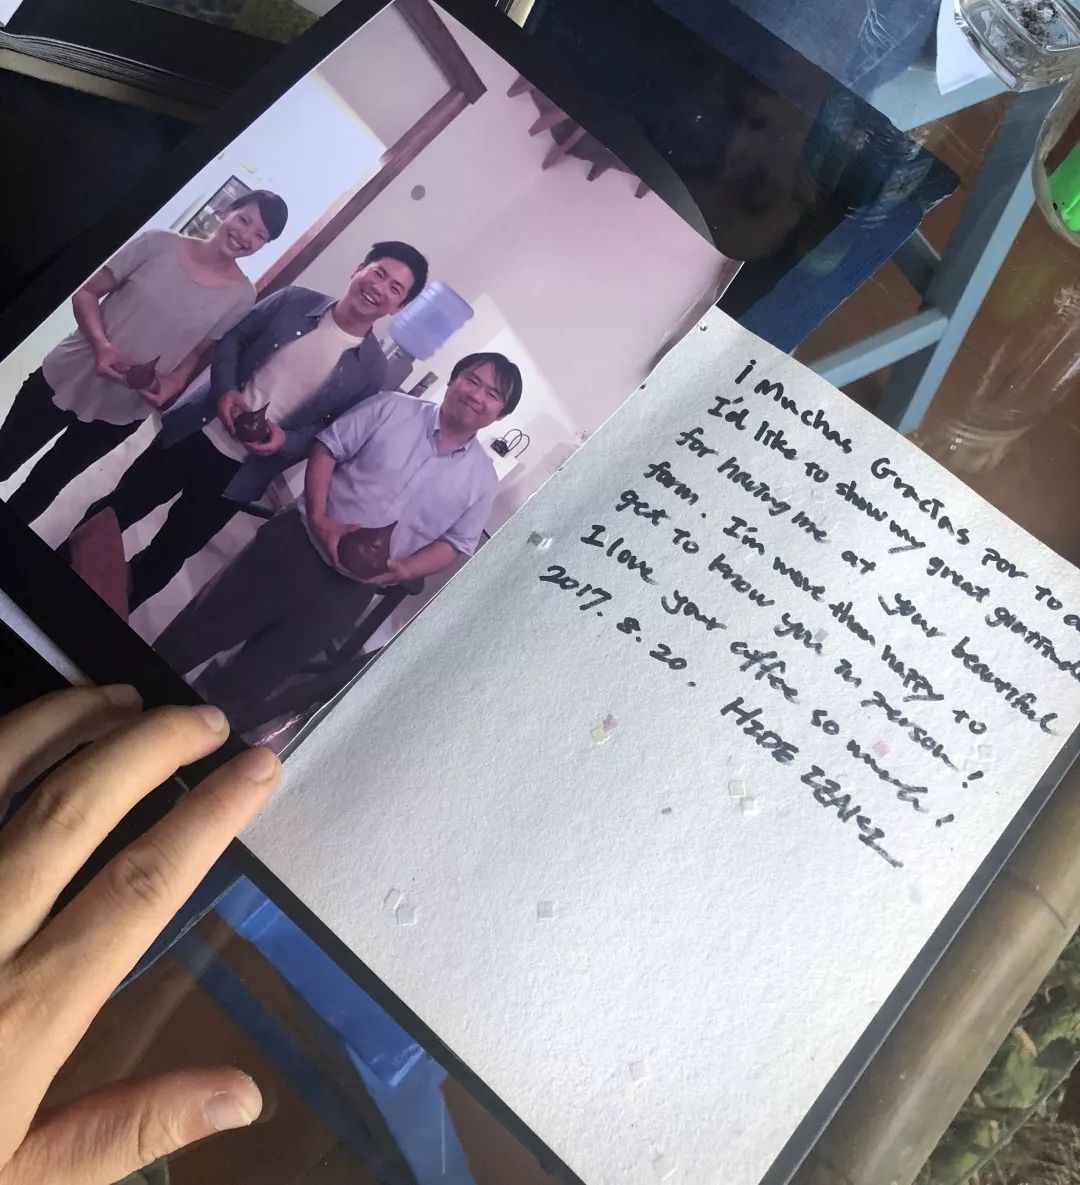 ¡Muchas Gracias por to
I'd like to show my great gratitude
for having me at your beautiful
farm. I'm more than happy to
get to know you in person!
I love your coffee so much!
2017. 8. 20. HIDE IZAKI